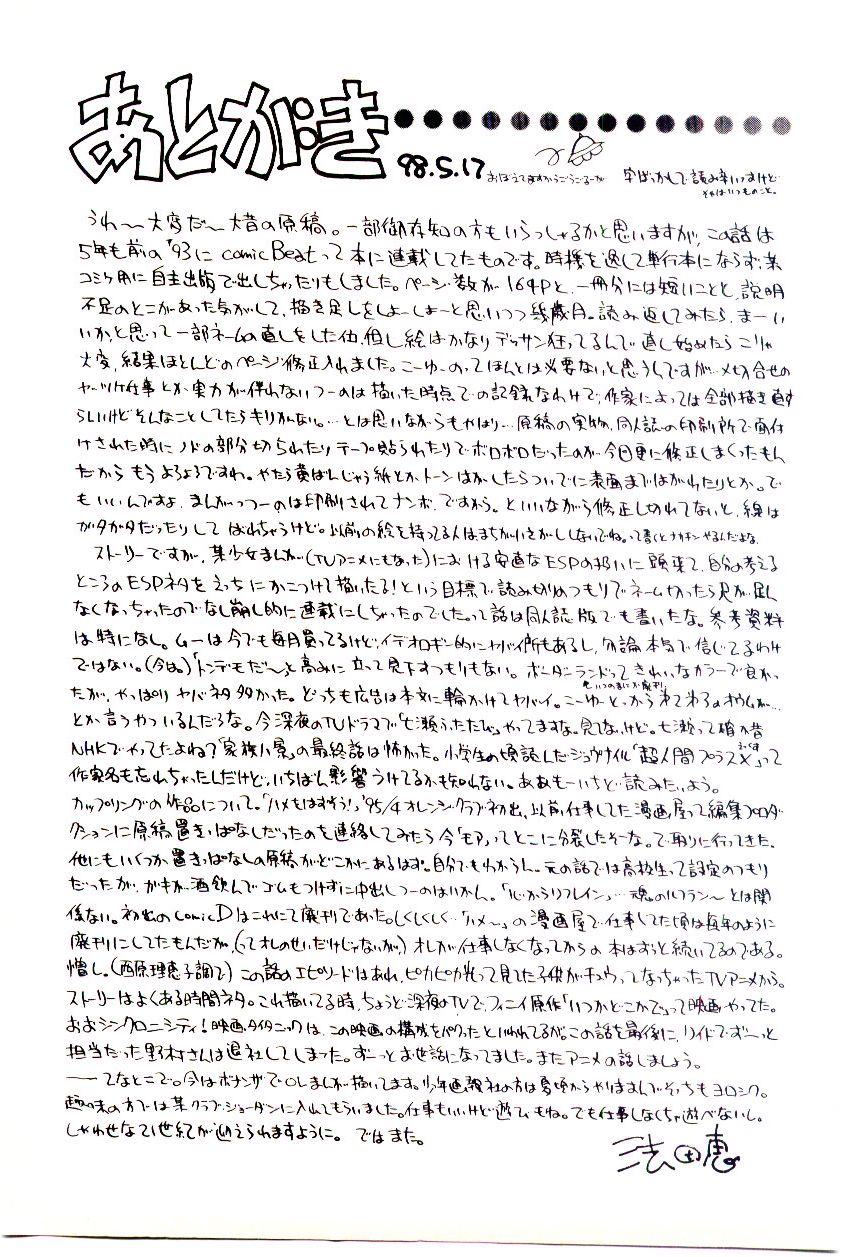 あとがき
98.5.17
おぼえてますかうごうごるーが
字ばっかしで読み辛いっすけど
それはいつものこと。
うわ〜大変だ〜大昔の原稿。一部御存知の方もいらっしゃるかと思いますが、この話は
5年も前の'93にcomic Beatって本に連載してたものです。時機を逸して単行本にならず、某
コミケ用に自主出版で出しちゃったりもしました。ページ数が164Pと、一冊分には短いことと、説明
不足のとこがあった気がして、描き足しをしよーしよーと思いつつ幾歳月。読み返してみたら、まーい
いかと思って一部ネームの直しをした位、但し絵はかなりデッサン狂ってるんで直し始めたらこりゃ
大変、結果ほとんどのページ修正入れました。こーゆーのってほんとは必要ないと思うんですが…〆切合せの
ヤッツケ仕事とか実力が伴わないつーのは描いた時点での記録なわけで、作家によっては全部描き直す
らしいけどそんなことしてたらキリがない。…とは思いながらもやはり…原稿の実物、同人誌の印刷所で面付
けされた時にノドの部分切られたりテープ貼られたりでボロボロだったのが今回更に修正しまくったもん
だからもうよろよろですわ。やたら黄ばんじゃう紙とか、トーンはがしたらついでに表面まではがれたりとか。で
もいいんですよ、まんがっつーのは印刷されてナンボ、ですから。といいながら修正し切れてないと、線は
ガタガタだったりしてばれちゃうけど。以前の絵を持ってる人はまちがいさがししないでね。って書くとナカキンやるんだよな。
ストーリーですが、某少女まんが(TVアニメにもなった)における安直なESPの扱いに頭来て、自分の考える
ところのESPネタをえっちにかこつけて描いたる！という目標で、読み切りのつもりでネーム切ったら尺が足ん
なくなっちゃったのでなし崩し的に連載にしちゃったのでした。って話は同人誌版でも書いたな。参考資料
は特になし。ムーは今でも毎月買ってるけど、イデオロギー的にヤバイ所もあるし、勿論本気で信じてるわけ
ではない。(今は。)「トンデモだ〜」と高みに立って見下すつもりもない。ボーダーランドってきれいなカラーで良かっ
といつのまにか廃刊。
たが、やっぱりヤバネタ多かった。どっちも広告は本文に輪かけてヤバイ。こーゆーとっから第二第三のオウムが…
とか言うやついるんだろな。今深夜のTVドラマで「七瀬ふたたび」やってますな。見てないけど。七瀬って確か昔
NHKでやってたよね？「家族八景」の最終話は怖かった。小学生の頃読したジョヴナイル「超人間プラスX」って
作家名も忘れちゃったしだけど、いちばん影響うけてるかも知れない。ああもーいちど読みたいよう。
カップリングの作品について。「ハメをはずそう！」'95/4オレンジクラブ初出、以前仕事してた漫画屋って編集プロダ
クションに原稿置きっぱなしだったのを連絡してみたら今「モア」ってとこに分裂したそーな。で取りに行ってきた。
他にもいくつか置きっぱなしの原稿がどこかにあるはず。自分でもわからん。元の話では高校生って設定のつもり
だったが、ガキが酒飲んでゴムもつけずに中出しつーのはいかん。「心からリフレイン」…魂のルフラン〜とは関
係ない。初出のcomic Dはこれにて廃刊であった。しくしくしく…「ハメ〜」の漫画屋で仕事してた頃は毎年のように
廃刊にしてたもんだが、(ってオレのせいだけじゃないが。)オレが仕事しなくなってからの本はずっと続いてるのである。
憎し。(西原理恵子調で)この話のエピソードはあれ、ピカピカ光って見てた子供がキュウってなっちゃったTVアニメから。
ストーリーはよくある時間ネタ。これ描いてる時、ちょうど深夜のTVで、フィニイ原作「いつかどこかで」って映画やってた。
おおシンクロニシティ！映画タイタニックは、この映画の構成をパクったといわれてるが。この話を最後に、リイドでず〜っと
担当だった野村さんは退社してしまった。ず〜っとお世話になってました。またアニメの話しましょう。
──てなとこで。今はボナンザで〇しまが描いてます。少年画報社の方は夏頃からやりますんでそっちもヨロシク。
趣味の方では某クラブ・ジョーダンに入れてもらいました。仕事もいいけど遊びもね。でも仕事しなくちゃ遊べないし。
しあわせな21世紀が迎えられますように。ではまた。
法田恵